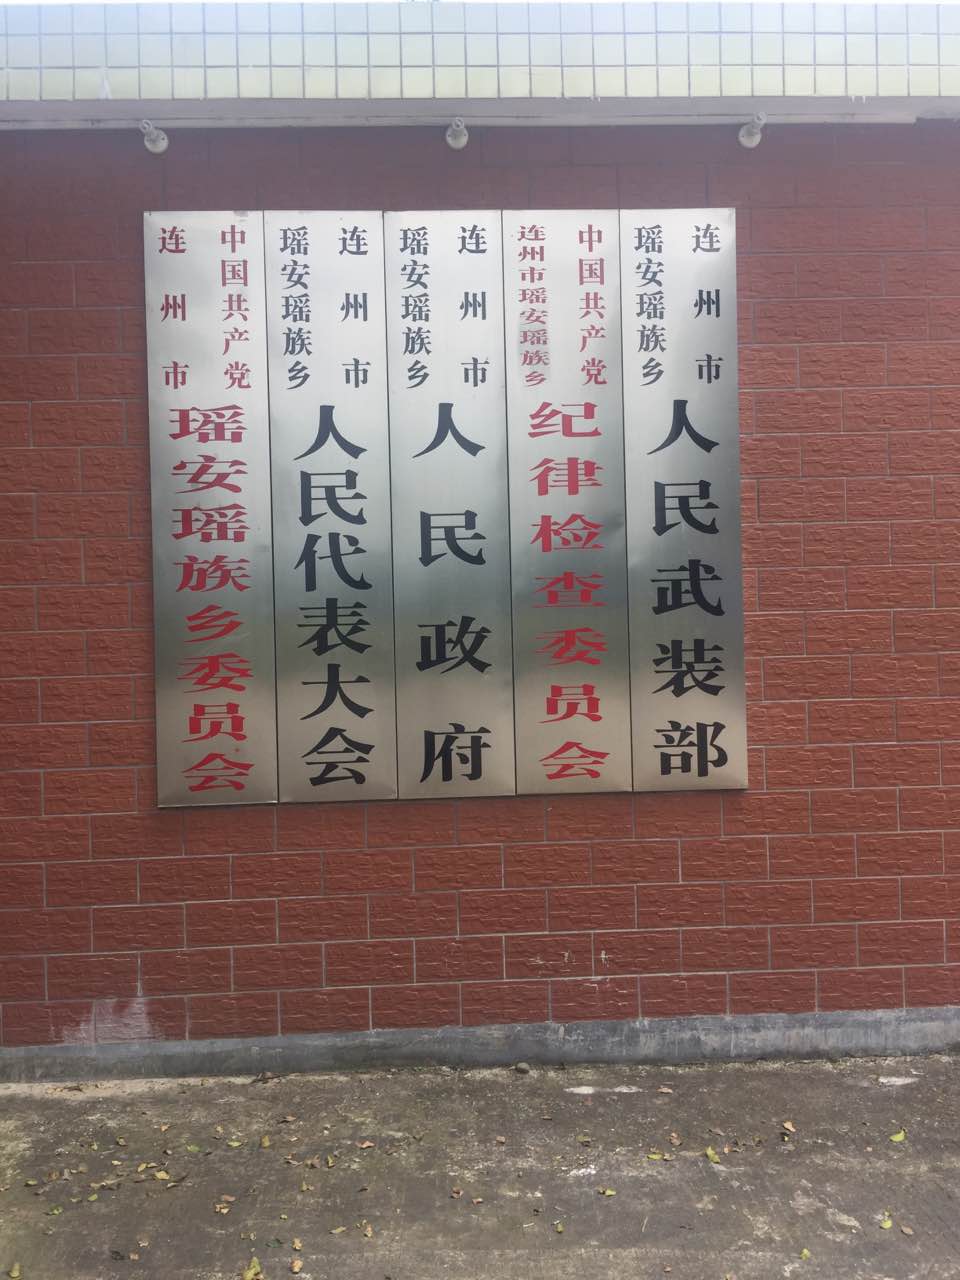 中国共产党
连州市
瑶安瑶族乡委员会
连州市
瑶安瑶族乡
人民代表大会
连州市
瑶安瑶族乡
人民政府
中国共产党
连州市瑶安瑶族乡
纪律检查委员会
连州市
瑶安瑶族乡
人民武装部